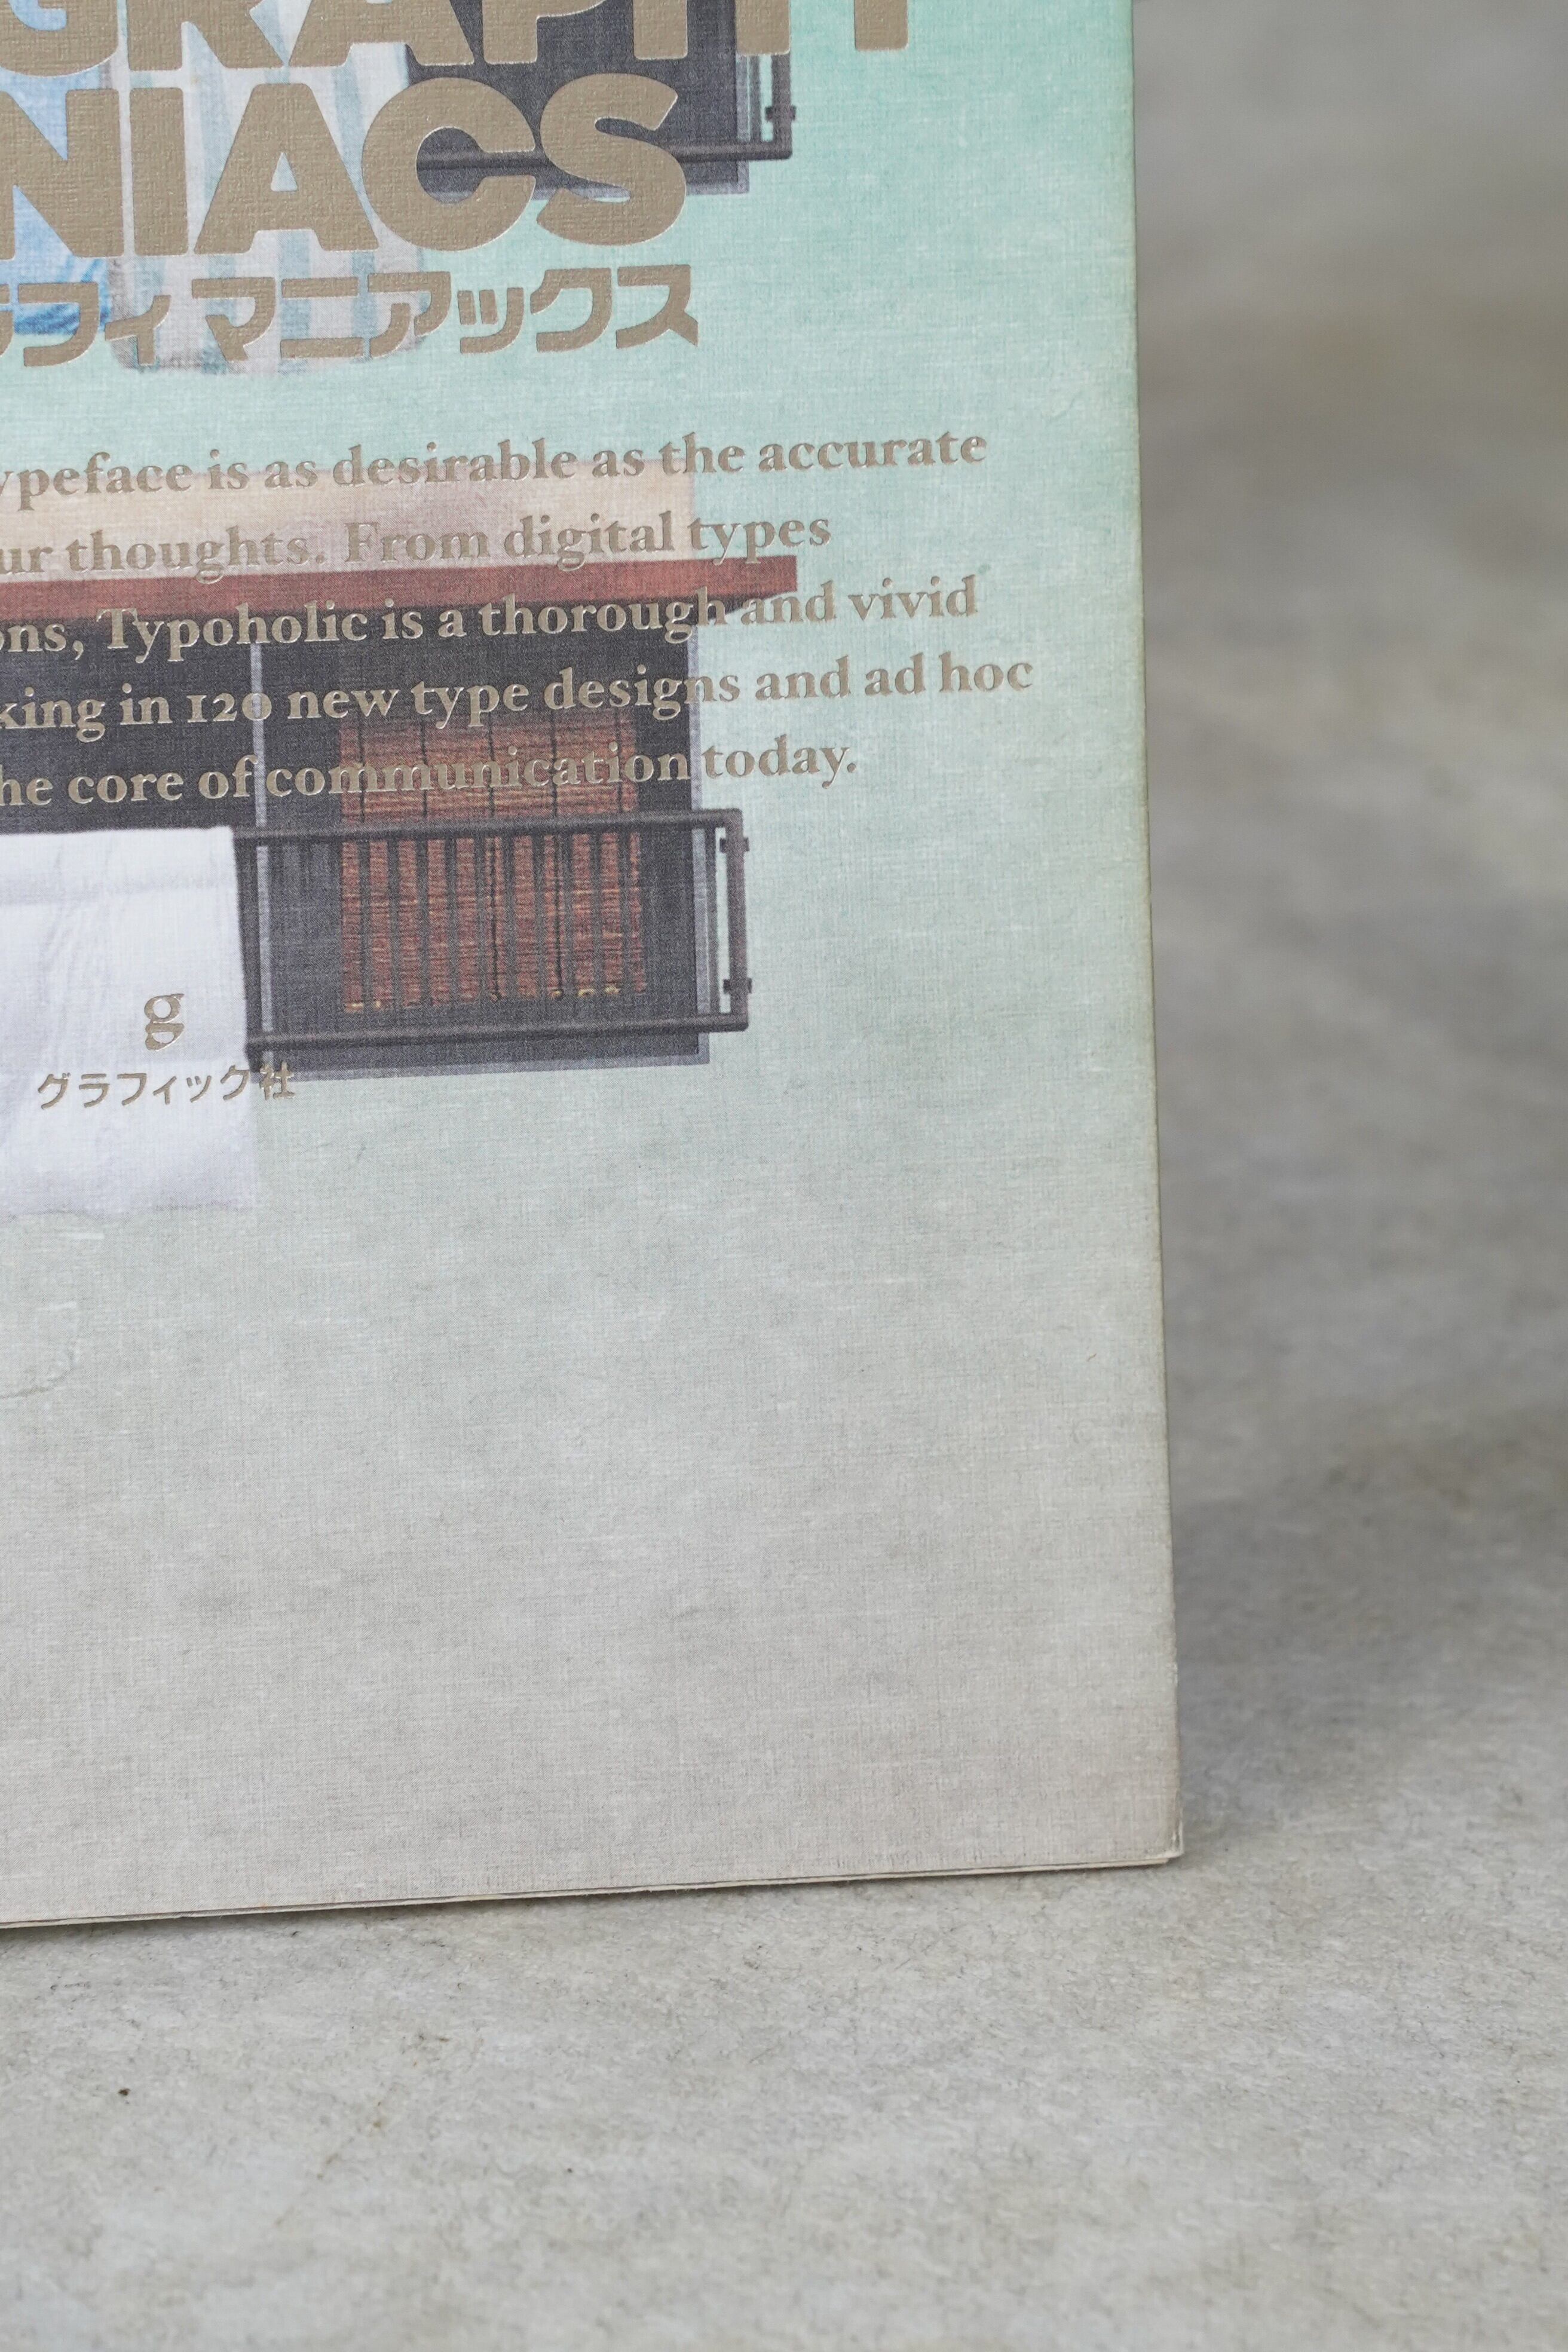 GRAPHY
NIACS
ラフィ マニアックス
ypeface is as desirable as the accurate
ur thoughts. From digital types
ons, Typoholic is a thorough and vivid
king in 120 new type designs and ad hoc
he core of communication today.
g
グラフィック社